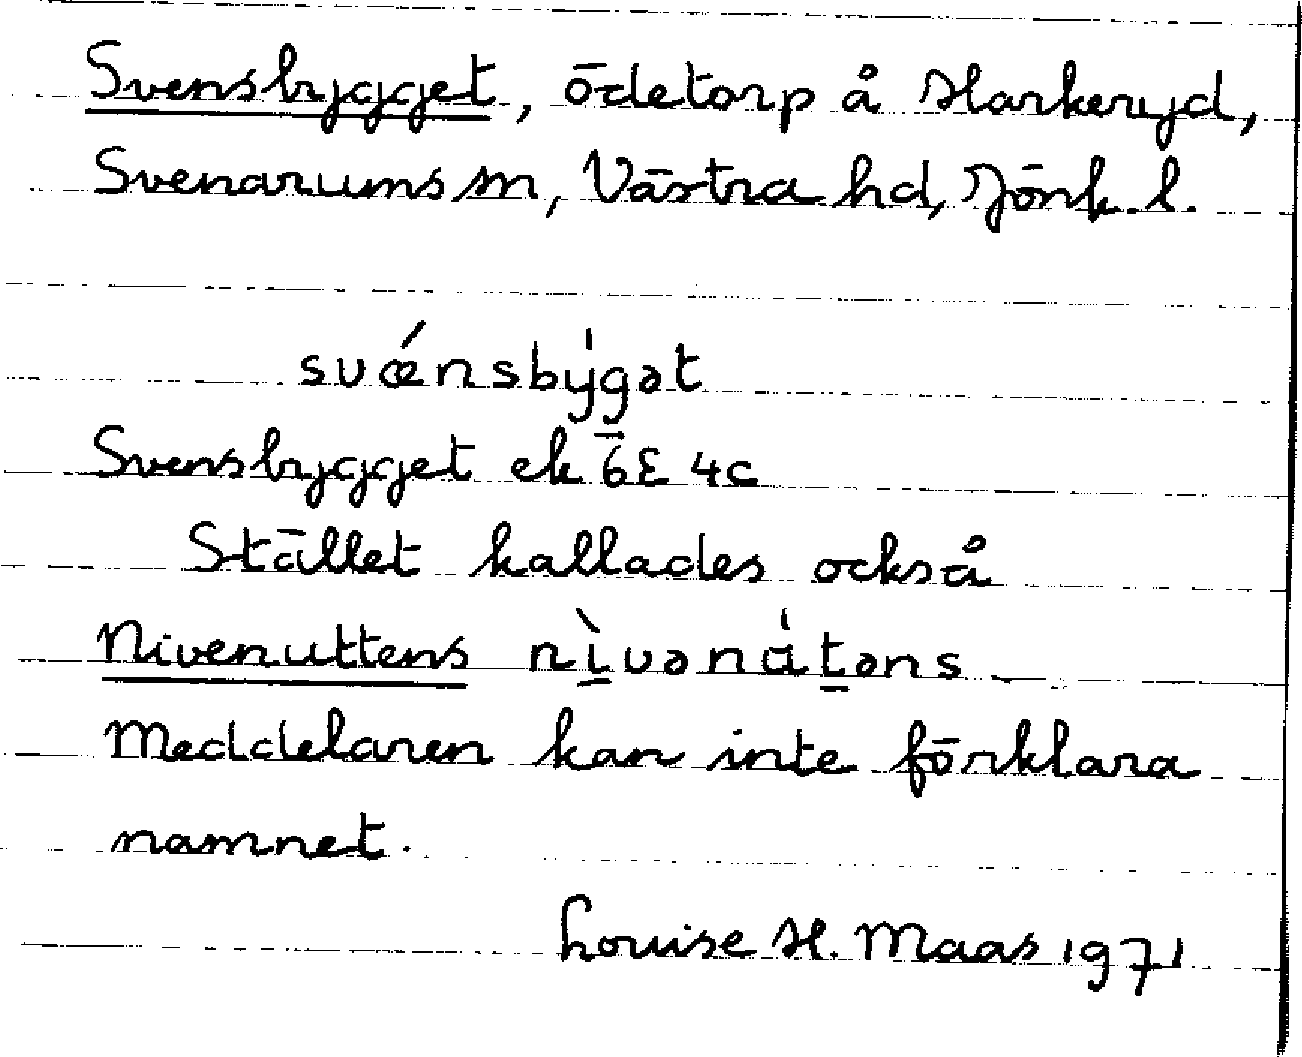 Svensbygget, ödetorp å Harkeryd,
Svenarums sn, Västra hd, Jönk. l.
svǽnsby̍gət
Svensbygget ek 6E 4c
Stället kallades också
Nivenuttens nìvəná̍təns
Meddelaren kan inte förklara
namnet.
Louise H. Maas 1971